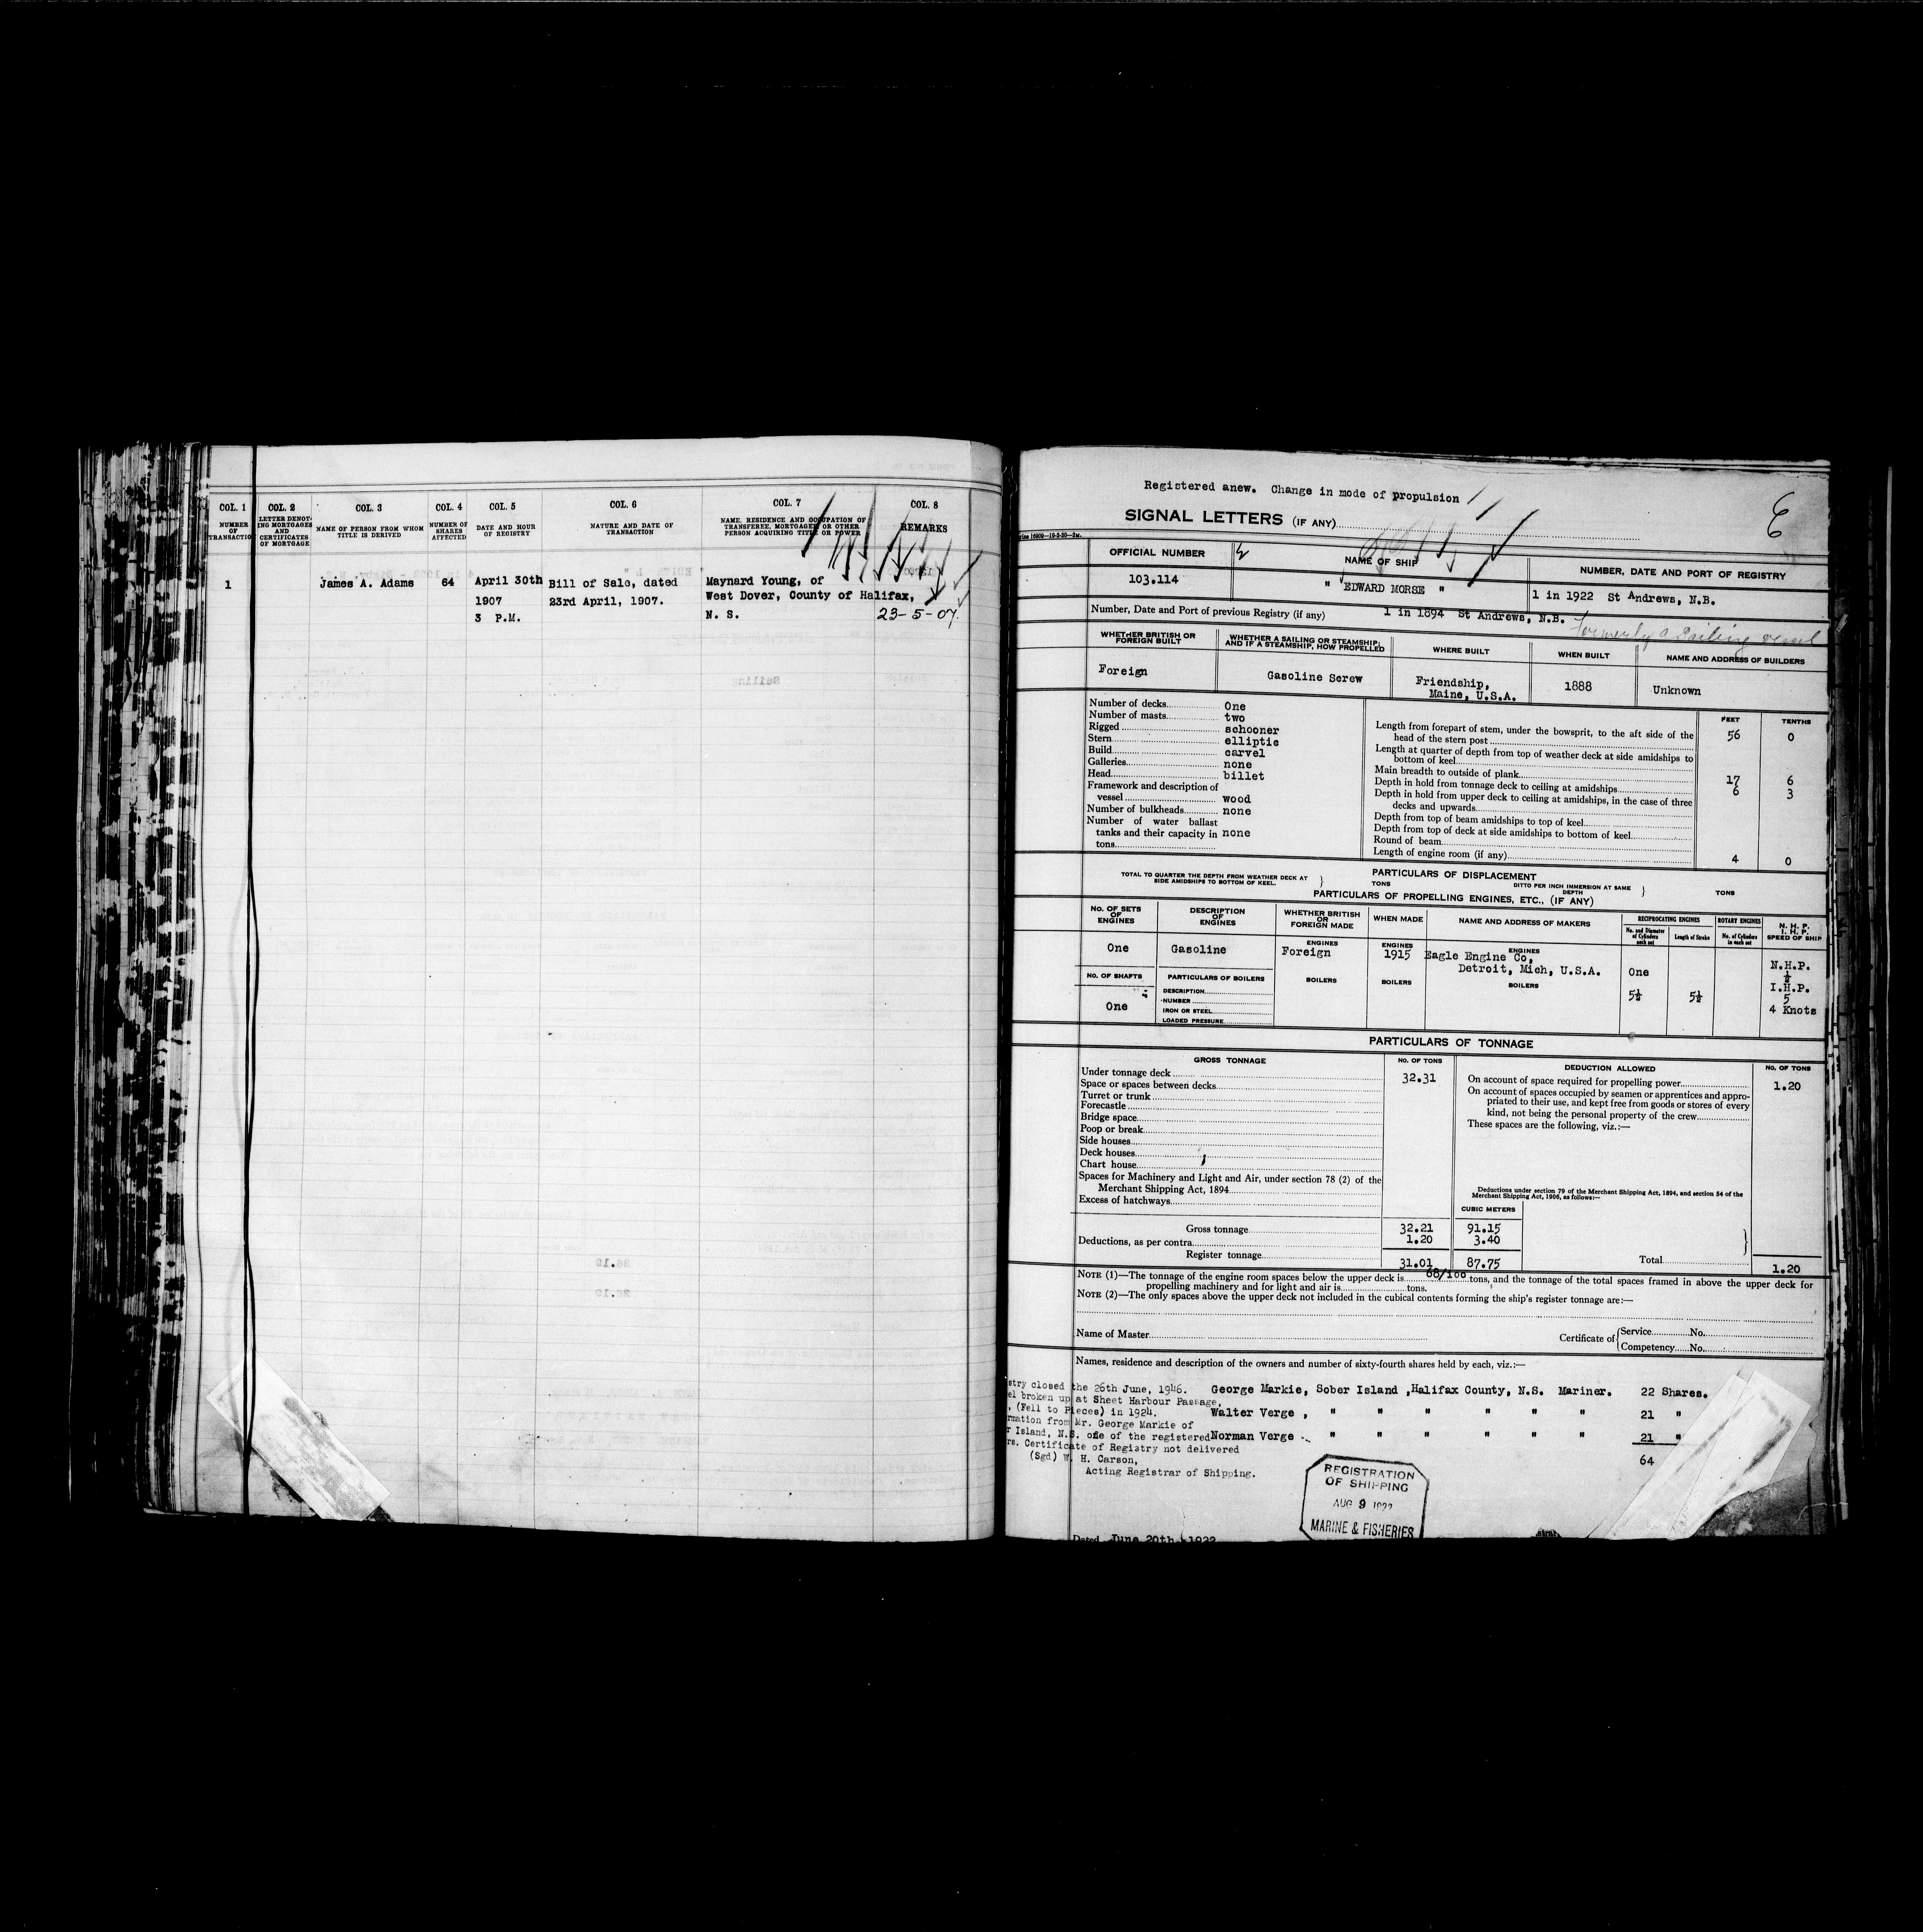 COL. 1 COL. 2 COL. 3 COL. 4 COL. 5 COL. 6 COL. 7 COL. 8
NUMBER OF TRANSACTIO
LETTER DENOT-
ING MORTGAGES
AND
CERTIFICATES
OF MORTGAGE
NAME OF PERSON FROM WHOM
TITLE IS DERIVED
NUMBER OF
SHARES
AFFECTED
DATE AND HOUR
OF REGISTRY
NATURE AND DATE OF
TRANSACTION
NAME, RESIDENCE AND OCCUPATION OF
TRANSFEREE, MORTGAGEE OR OTHER
PERSON ACQUIRING TITLE OR POWER
REMARKS
1 James A. Adams 64 April 30th Bill of Sale, dated Maynard Young, of
1907 23rd April, 1907. West Dover, County of Halifax,
3 P.M. N. S. 23-5-07.
Registered anew. Change in mode of propulsion
SIGNAL LETTERS (IF ANY)
E
OFFICIAL NUMBER
NAME OF SHIP
NUMBER, DATE AND PORT OF REGISTRY
103.114 " EDWARD MORSE " 1 in 1922 St Andrews, N.B.
Number, Date and Port of previous Registry (if any) 1 in 1894 St Andrews, N.B.
formerly a Sailing vessel
WHETHER BRITISH OR
FOREIGN BUILT
WHETHER A SAILING OR STEAMSHIP;
AND IF A STEAMSHIP, HOW PROPELLED
WHERE BUILT
WHEN BUILT
NAME AND ADDRESS OF BUILDERS
Foreign Gasoline Screw Friendship,
Maine, U.S.A. 1888 Unknown
Number of decks One
Number of masts two
Rigged schooner
Stern elliptic
Build carvel
Galleries none
Head billet
Framework and description of
vessel wood
Number of bulkheads none
Number of water ballast
tanks and their capacity in none
tons
FEET TENTHS
Length from forepart of stem, under the bowsprit, to the aft side of the
head of the stern post 56 0
Length at quarter of depth from top of weather deck at side amidships to
bottom of keel
Main breadth to outside of plank 17 6
Depth in hold from tonnage deck to ceiling at amidships 6 3
Depth in hold from upper deck to ceiling at amidships, in the case of three
decks and upwards
Depth from top of beam amidships to top of keel
Depth from top of deck at side amidships to bottom of keel
Round of beam
Length of engine room (if any) 4 0
PARTICULARS OF DISPLACEMENT
TOTAL TO QUARTER THE DEPTH FROM WEATHER DECK AT
SIDE AMIDSHIPS TO BOTTOM OF KEEL. } TONS
DITTO PER INCH IMMERSION AT SAME
DEPTH } TONS
PARTICULARS OF PROPELLING ENGINES, ETC., (IF ANY)
No. OF SETS
OF
ENGINES
DESCRIPTION
OF
ENGINES
WHETHER BRITISH
OR
FOREIGN MADE
WHEN MADE
NAME AND ADDRESS OF MAKERS
RECIPROCATING ENGINES
No. and Diameter
of Cylinders
each set
Length of Stroke
ROTARY ENGINES
No. of Cylinders
in each set
N. H. P.
I. H. P.
SPEED OF SHIP
ENGINES ENGINES ENGINES
One Gasoline Foreign 1915 Eagle Engine Co,
Detroit, Mich, U.S.A. One
N.H.P.
½
I.H.P.
5
4 Knots
5½ 5½
NO. OF SHAFTS
One
PARTICULARS OF BOILERS
DESCRIPTION
NUMBER
IRON OR STEEL
LOADED PRESSURE
BOILERS BOILERS BOILERS
PARTICULARS OF TONNAGE
GROSS TONNAGE No. OF TONS
Under tonnage deck 32.31
Space or spaces between decks
Turret or trunk
Forecastle
Bridge space
Poop or break
Side houses
Deck houses
Chart house
Spaces for Machinery and Light and Air, under section 78 (2) of the
Merchant Shipping Act, 1894
Excess of hatchways
CUBIC METERS
Gross tonnage 32.21 91.15
Deductions, as per contra 1.20 3.40
Register tonnage 31.01 87.75
DEDUCTION ALLOWED No. OF TONS
On account of space required for propelling power 1.20
On account of spaces occupied by seamen or apprentices and appro-
priated to their use, and kept free from goods or stores of every
kind, not being the personal property of the crew
These spaces are the following, viz.:—
Deductions under section 79 of the Merchant Shipping Act, 1894, and section 54 of the
Merchant Shipping Act, 1906, as follows:—
Total 1.20
NOTE (1)—The tonnage of the engine room spaces below the upper deck is 68/100 tons, and the tonnage of the total spaces framed in above the upper deck for
propelling machinery and for light and air is tons.
NOTE (2)—The only spaces above the upper deck not included in the cubical contents forming the ship's register tonnage are:—
Name of Master
Certificate of { Service No.
Competency No.
Names, residence and description of the owners and number of sixty-fourth shares held by each, viz.:—
George Markie, Sober Island ,Halifax County, N.S. Mariner. 22 Shares.
Walter Verge , " " " " " " 21 "
Norman Verge " " " " " " 21 "
64
stry closed the 26th June, 1946.
el broken up at Sheet Harbour Passage,
, (Fell to Pieces) in 1924.
rmation from Mr. George Markie of
r Island, N.S. one of the registered
rs. Certificate of Registry not delivered
(Sgd) W. H. Carson,
Acting Registrar of Shipping.
REGISTRATION
OF SHIPPING
AUG 9 1922
MARINE & FISHERIES
Dated June 20th 1922